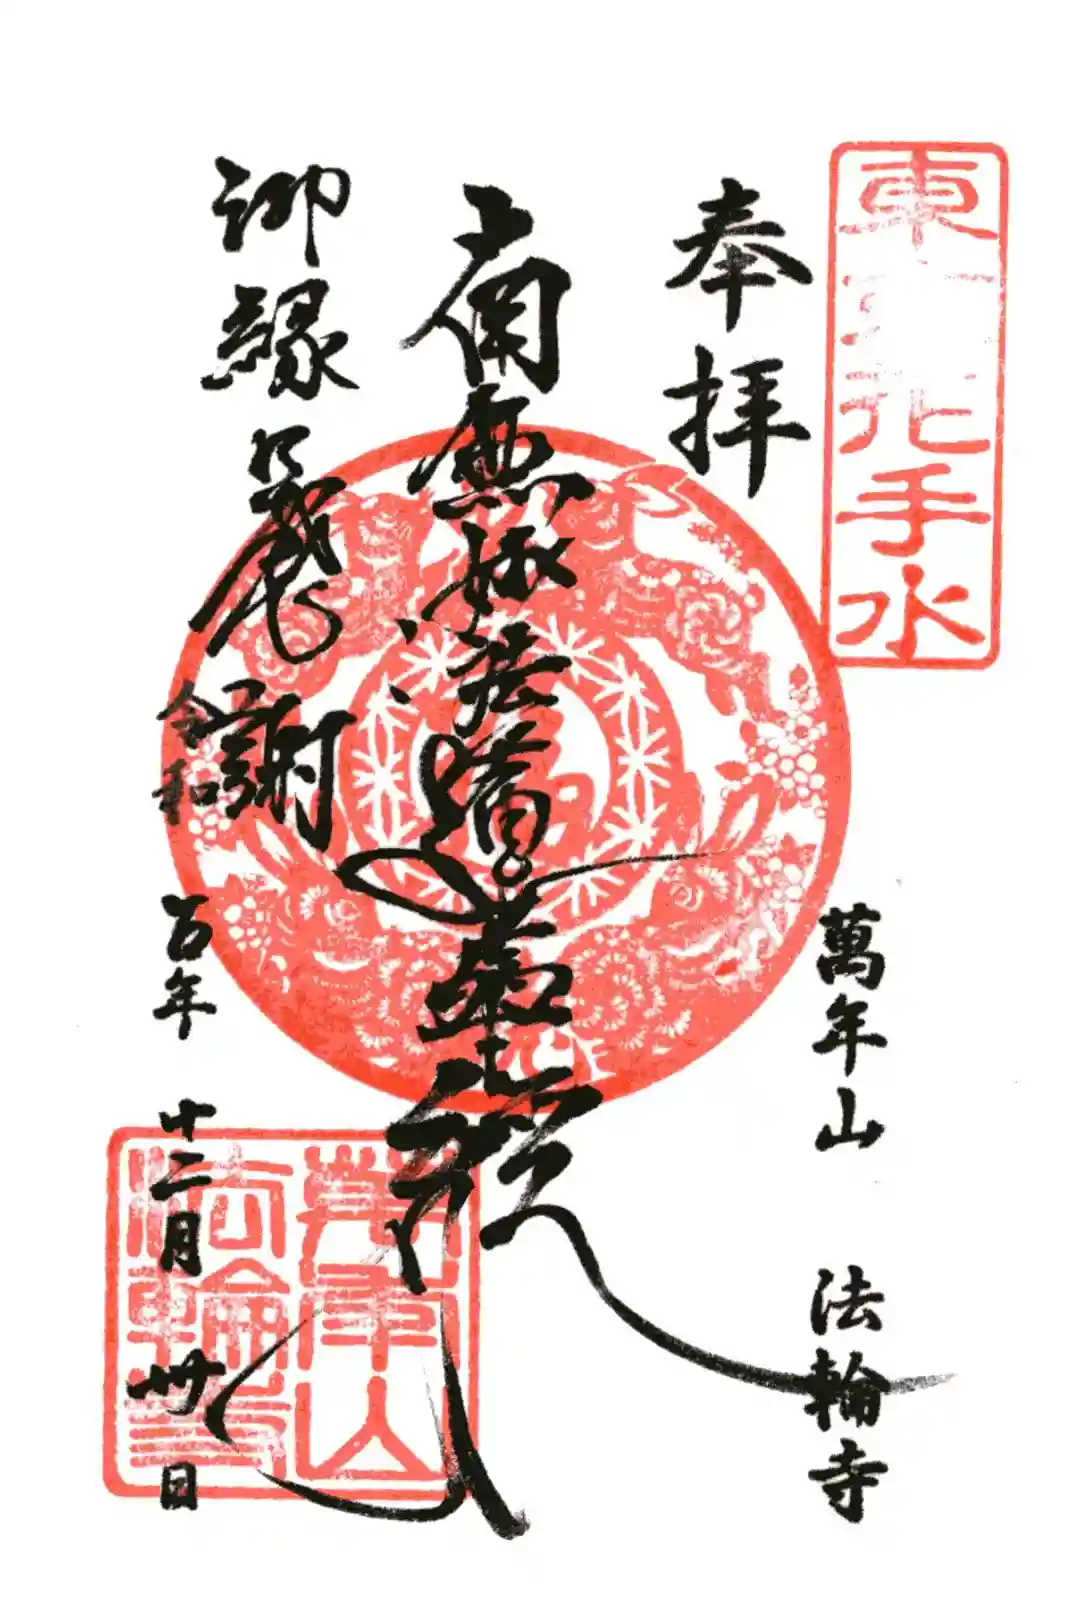 東北花手水
奉拝
萬年山 法輪寺
南無妙法蓮華経
御縁感謝
令和
五年
十二月
卅日
萬年山
法輪寺